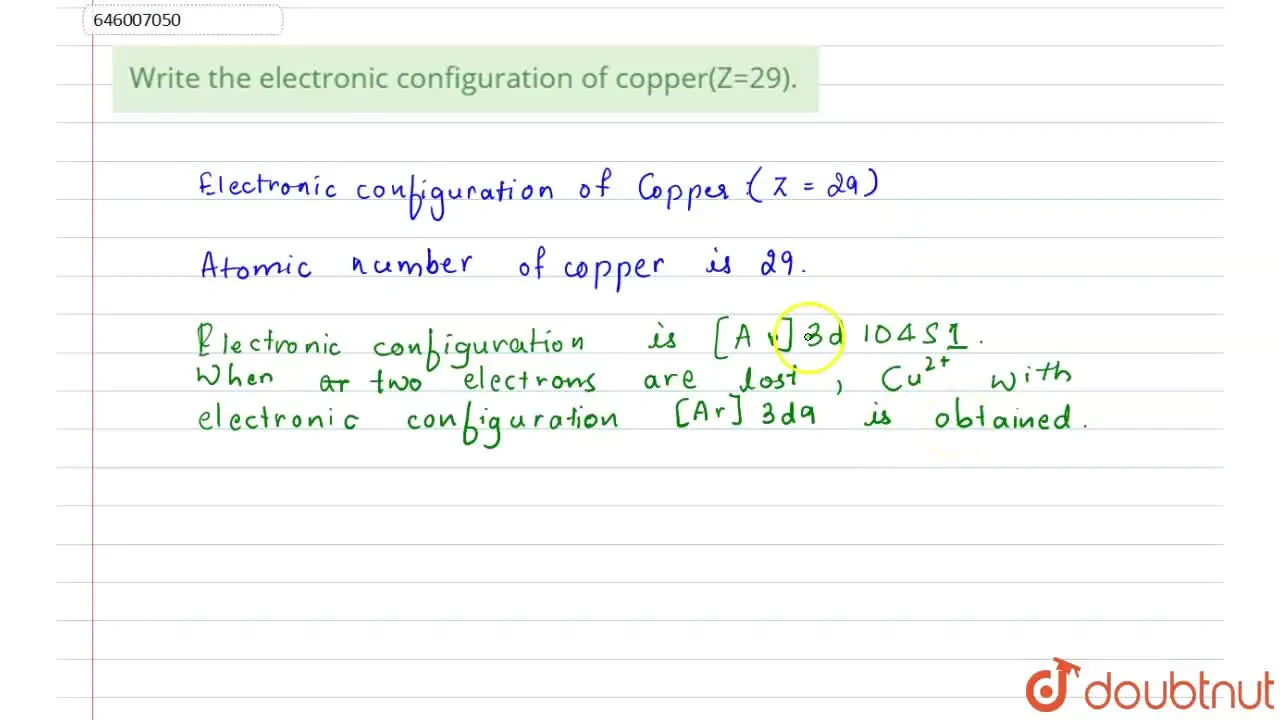 646007050
Write the electronic configuration of copper(Z=29).
Electronic configuration of Copper (Z = 29)
Atomic number of copper is 29.
Electronic configuration is [Ar] 3d 104S1.
When two electrons are lost, Cu²⁺ with
electronic configuration [Ar] 3d9 is obtained.
doubtnut